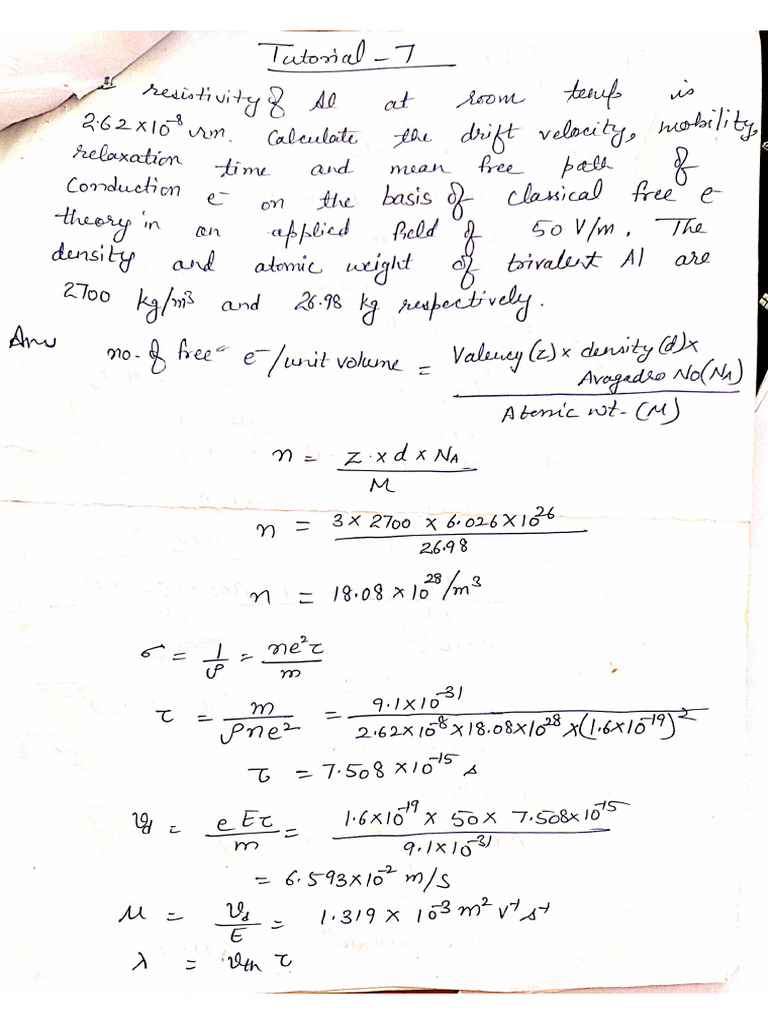 Tutorial - 7
resistivity of Al at room temp is
2.62×10⁻⁸ Ωm. Calculate the drift velocity, mobility,
relaxation time and mean free path of
Conduction e⁻ on the basis of classical free e⁻
theory in an applied field of 50 V/m. The
density and atomic weight of trivalent Al are
2700 kg/m³ and 26.98 kg respectively.
Ans no. of free e⁻/unit volume = Valency (z) × density (d) × Avagadro No (NA) / Atomic wt. (M)
n = z × d × NA / M
n = 3 × 2700 × 6.026 × 10²⁶ / 26.98
n = 18.08 × 10²⁸ /m³
σ = 1/ρ = ne²τ/m
τ = m/ρne² = 9.1×10⁻³¹ / 2.62×10⁻⁸×18.08×10²⁸×(1.6×10⁻¹⁹)²
τ = 7.508 × 10⁻¹⁵ s
vd = eEτ/m = 1.6×10⁻¹⁹ × 50 × 7.508×10⁻¹⁵ / 9.1×10⁻³¹
= 6.593×10⁻² m/s
μ = vd/E = 1.319 × 10⁻³ m² V⁻¹ s⁻¹
λ = vth τ